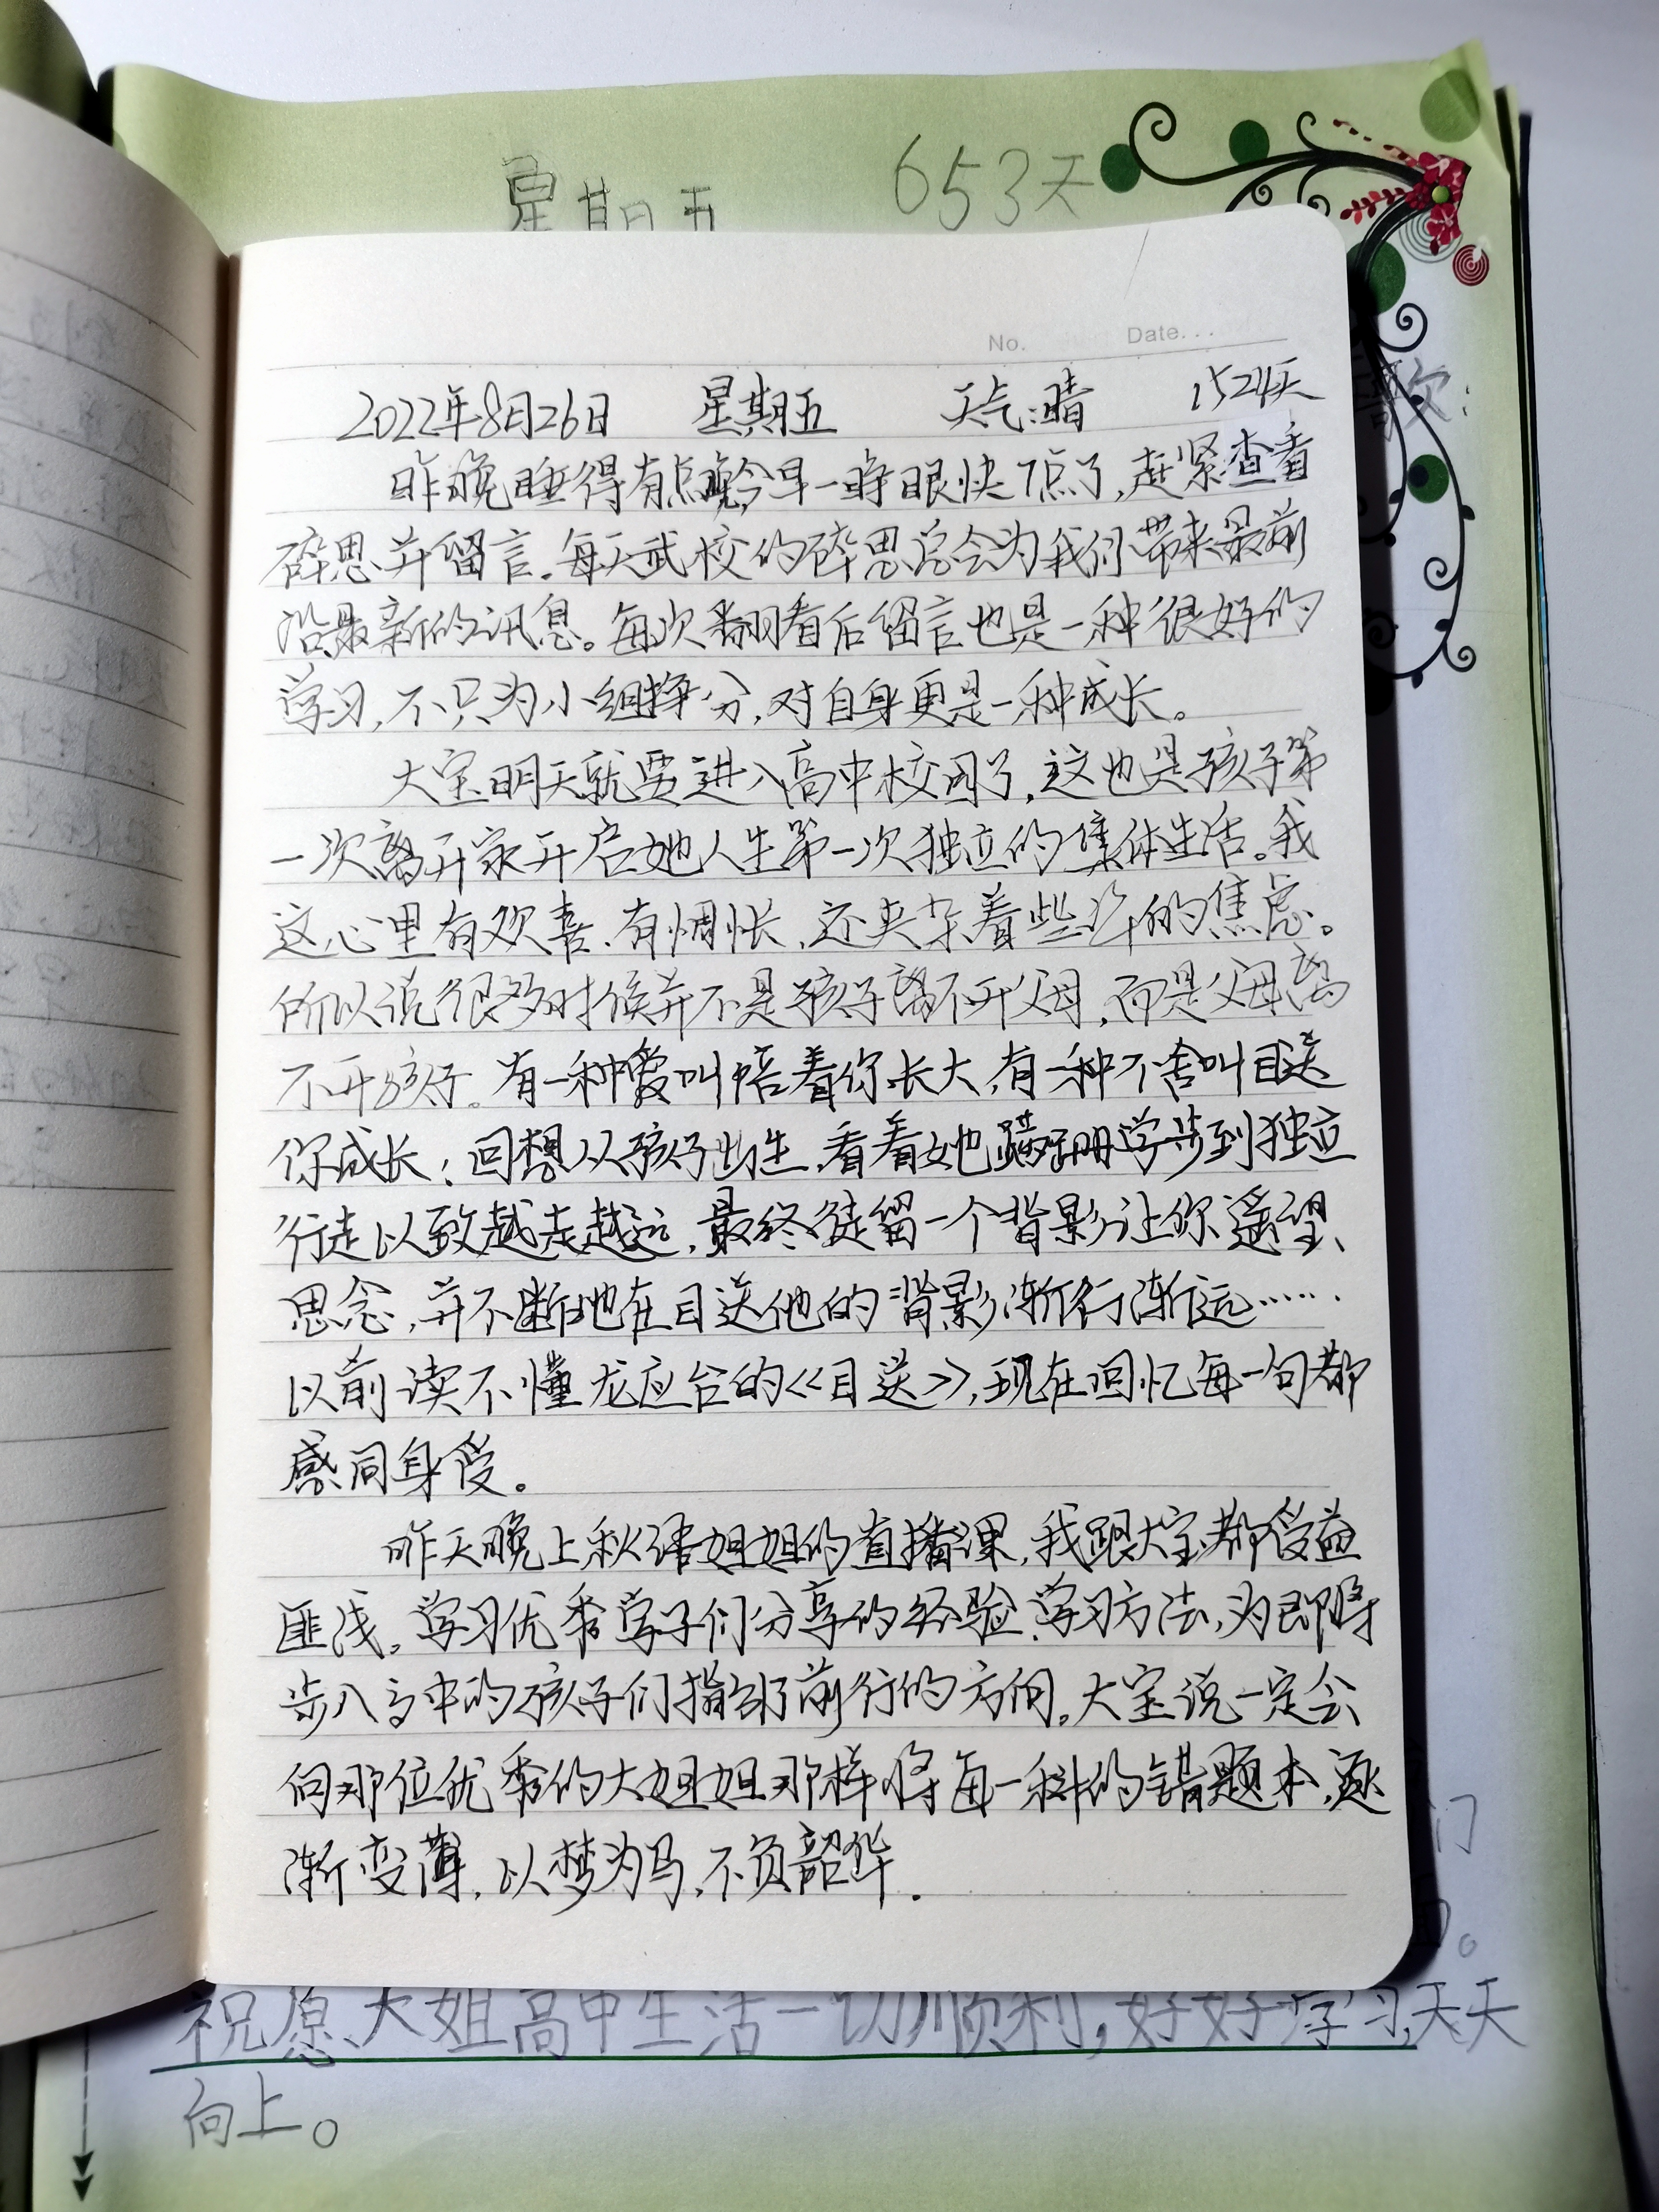 星期五 653天
No. Date...
2022年8月26日 星期五 天气:晴 1524天
昨晚睡得有点晚,今早一睁眼快7点了,赶紧查看
碎思并留言。每天武校的碎思总会为我们带来最前
沿最新的讯息。每次翻看后留言也是一种很好的
学习,不只为小组挣分,对自身更是一种成长。
大宝明天就要进入高中校园了,这也是孩子第
一次离开家开启她人生第一次独立的集体生活。我
这心里有欢喜、有惆怅、还夹杂着些许的焦虑。
所以说很多时候并不是孩子离不开父母,而是父母离
不开孩子。有一种爱叫陪着你长大,有一种不舍叫目送
你成长;回想从孩子出生,看着她蹒跚学步到独立
行走以致越走越远,最终徒留一个背影让你遥望、
思念,并不断地在目送他的背影渐行渐远……
以前读不懂龙应台的《目送》,现在回忆每一句都
感同身受。
昨天晚上秋语姐姐的直播课,我跟大宝都受益
匪浅。学习优秀学子们分享的经验、学习方法,为即将
步入高中的孩子们指明了前行的方向。大宝说一定会
向那位优秀的大姐姐那样将每一科的错题本,逐
渐变薄,以梦为马,不负韶华.
歌:
们
。
祝愿大姐高中生活一切顺利,好好学习,天天
向上。